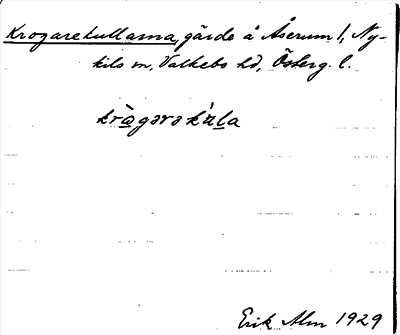 Krogarekullarna, gärde å Åserum 1, Ny-
kils sn, Valkebo hd, Österg. l.
krògarəkùla
Erik Alm 1929